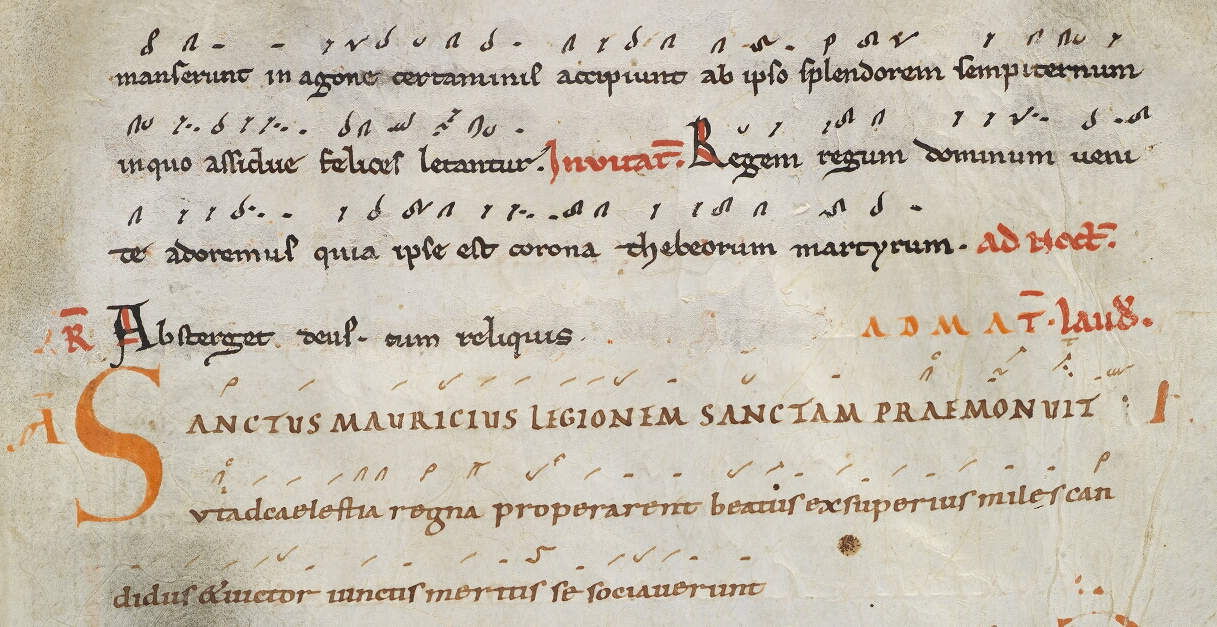 manserunt in agone certaminis accipiunt ab ipso splendorem sempiternum
in quo assidue felices letantur. Invitat̄. Regem regum dominum veni
te adoremus quia ipse est corona thebeorum martyrum. ad Noct̄.
R̄ Absterget deus. cum reliquis. AD MAT̄. laud̄.
Ā SANCTUS MAURICIUS LEGIONEM SANCTAM PRAEMONUIT : I
vt ad caelestia regna properarent beatus exsuperius miles can
didus & uictor iunctis meritis se sociauerunt